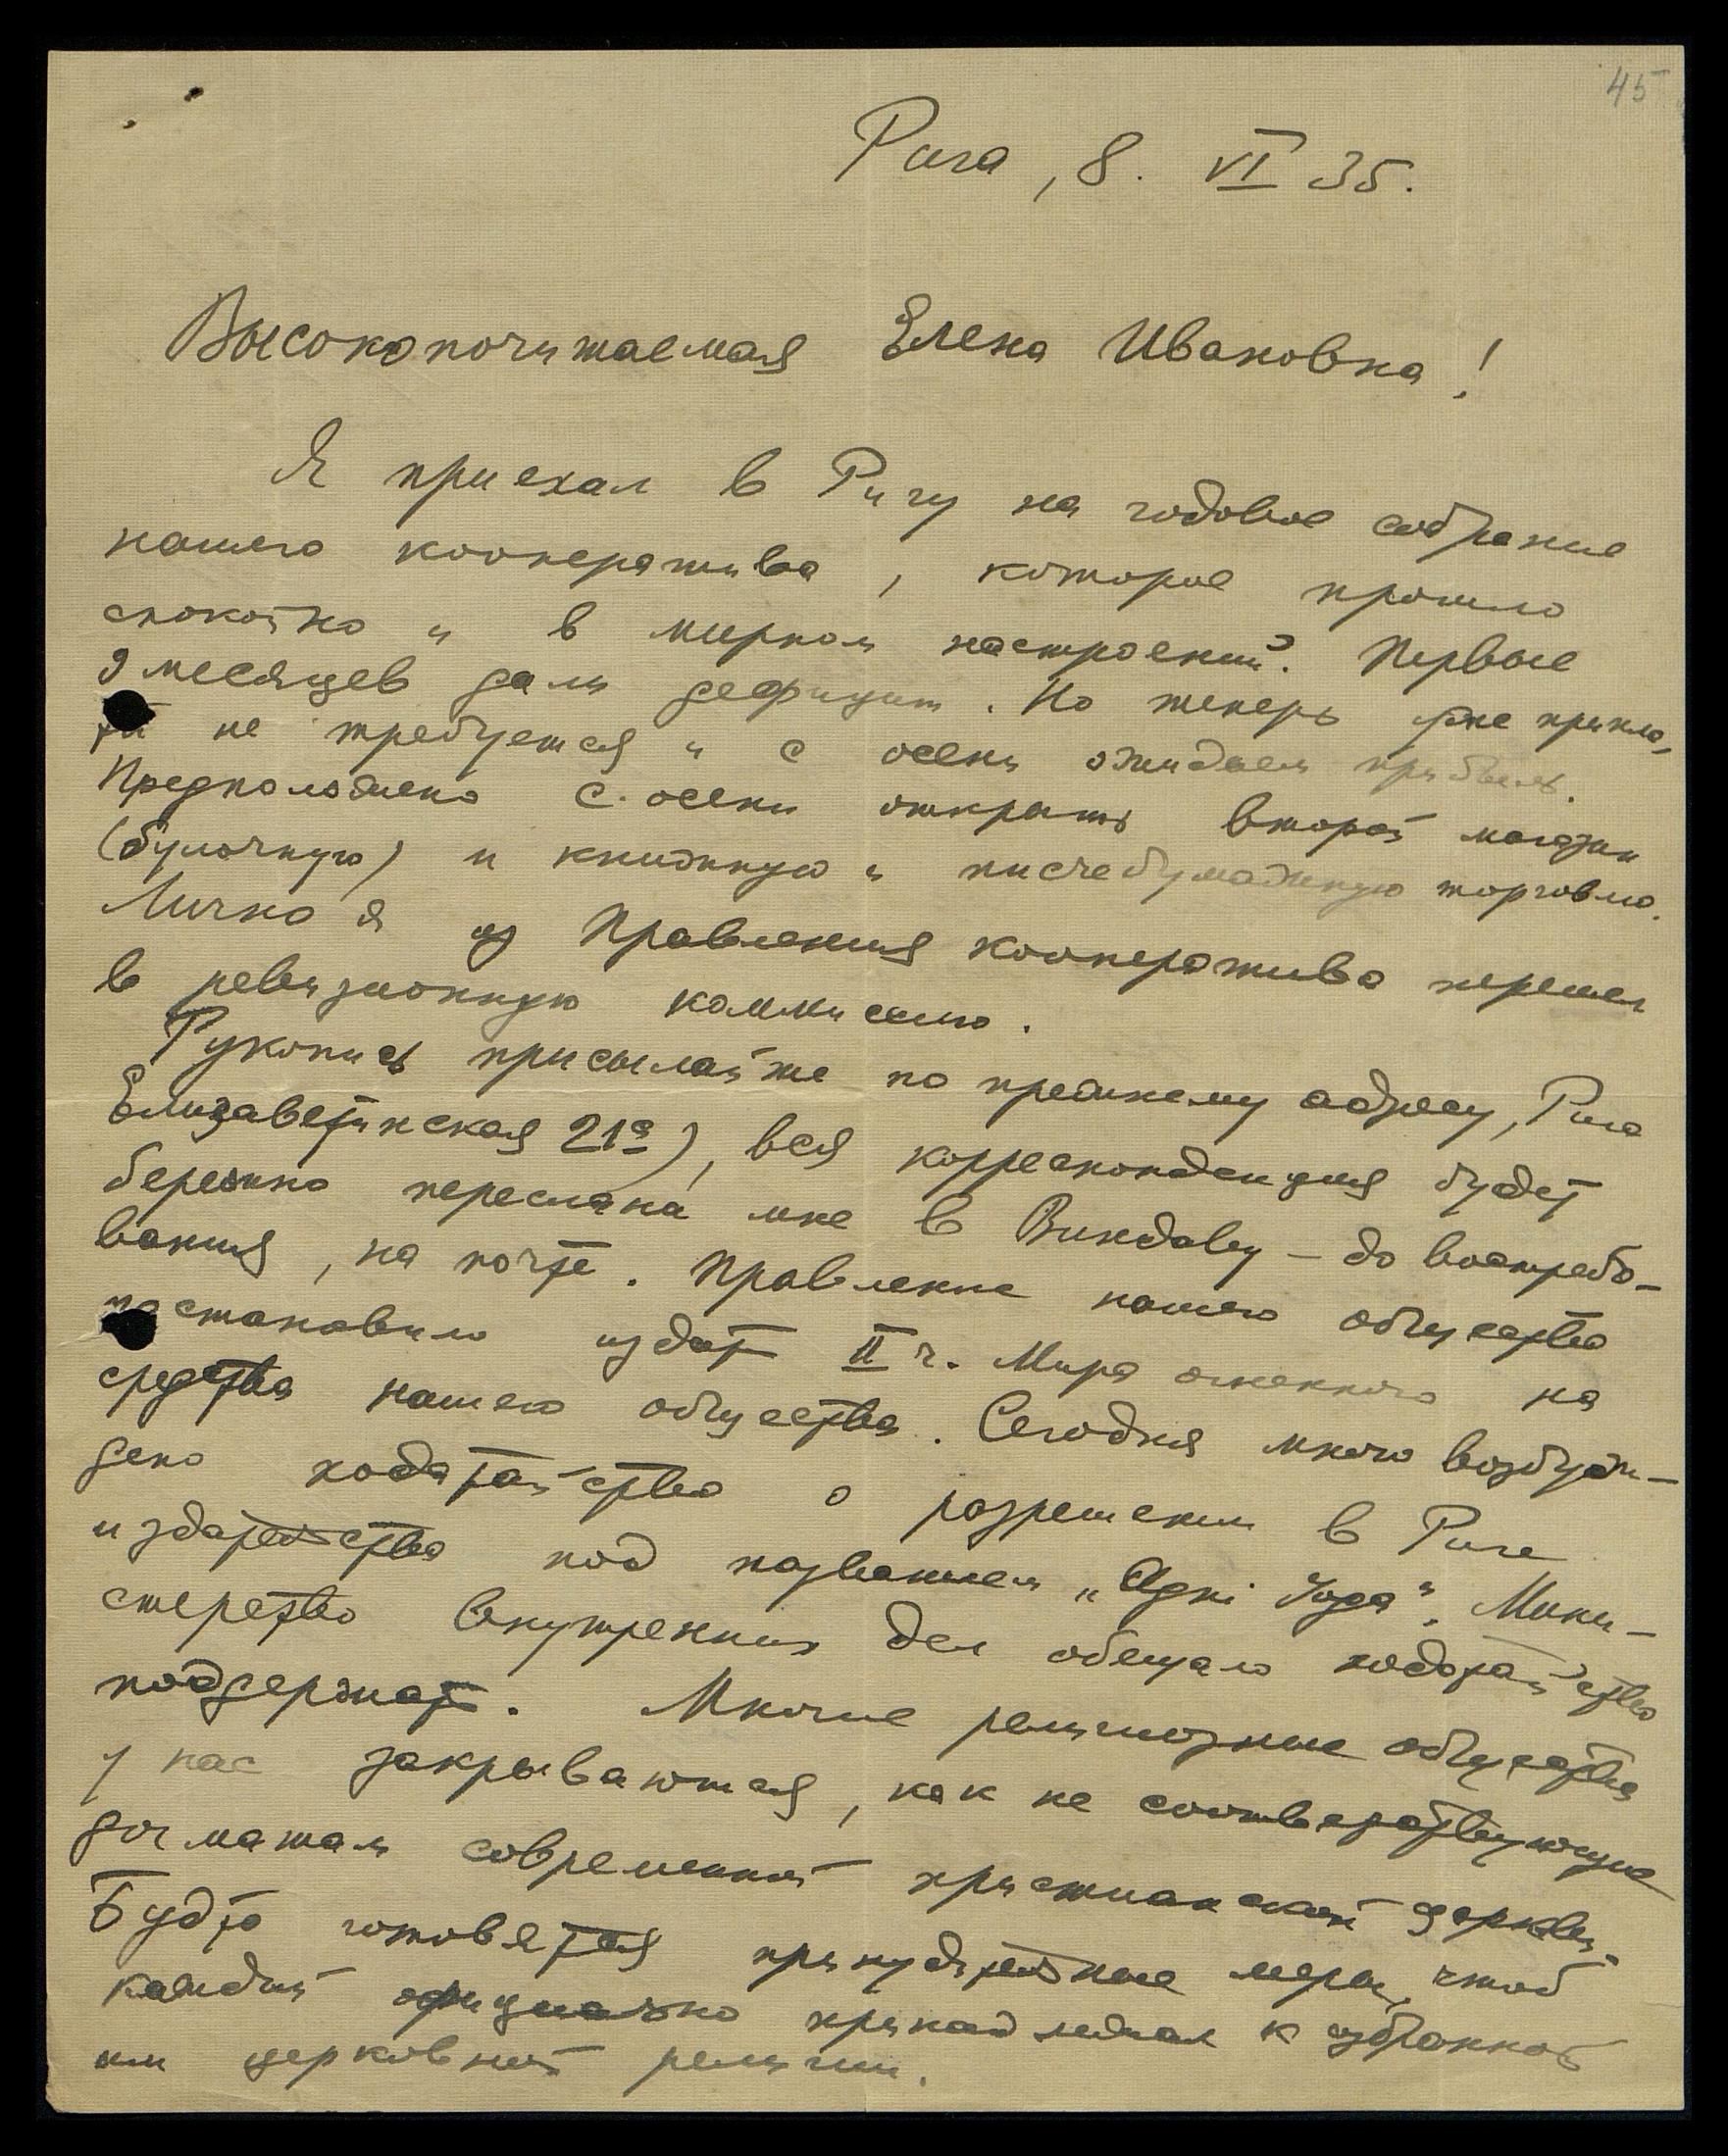 45
Рига, 8. VI 35.
Высокопочитаемая Елена Ивановна!
Я приехал в Ригу на годовое собрание
нашего кооператива, которое прошло
спокойно и в мирном настроении. Первые
9 месяцев дали дефицит. Но теперь уже
не требуется и с осени ожидаем прибыль.
Предположено с осени открыть второй магазин
(булочную) и книжную и писчебумажную торговлю.
Лично я из Правления кооператива перешел
в ревизионную коммиссию.
Рукопись присылайте по прежнему адресу, Рига
Елизаветинская 21а), вся корреспонденция будет
бережно переслана мне в Виндаву – до востребо-
вания, на почте. Правление нашего общества
постановило издать II ч. Мира огненного на
средства нашего общества. Сегодня мною возбуж-
дено ходатайство о разрешении в Риге
издательства под названием „Агни Йога". Мини-
стерство внутренних дел обещало ходатайство
поддержать. Многие религиозные общества
у нас закрываются, как не соответствующие
догматам современной христианской церкви.
Будто готовятся принудительные меры, чтоб
каждый официально принадлежал к избранной
им церковной религии.